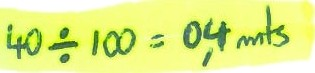 40 ÷ 100 = 0,4 mts